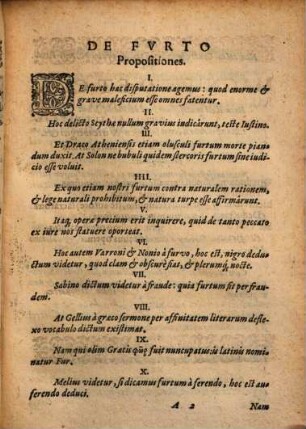 DE FVRTO
Propositiones.
I.
DE furto hac disputatione agemus: quod enorme &
graue maleficium esse omnes fatentur.
II.
Hoc delicto Scythæ nullum grauius indicârunt, teste Iustino.
III.
Et Draco Atheniensis etiam olusculi furtum morte pian
dum duxit. At Solon ne bubuli quidem stercoris furtum sine iudi
cio esse voluit.
IIII.
Ex quo etiam nostri furtum contra naturalem rationem,
& lege naturali prohibitum, & natura turpe esse affirmârunt.
V.
Itaq; operæ precium erit inquirere, quid de tanto peccato
ex iure nos statuere oporteat.
VI.
Hoc autem Varroni & Nonio à furuo, hoc est, nigro dedu
ctum videtur, quod clam & obscurè fiat, & plerumq; nocte.
VII.
Sabino dictum videtur à fraude: quia furtum fit per frau
dem.
VIII.
At Gellius à græco sermone per affinitatem literarum defle
xo vocabulo dictum existimat.
IX.
Nam qui olim Græcis φὼρ fuit nuncupatus: is latinis nomi
natur Fur.
X.
Melius videtur, si dicamus furtum à ferendo, hoc est au
ferendo deduci.
A 2 Nam